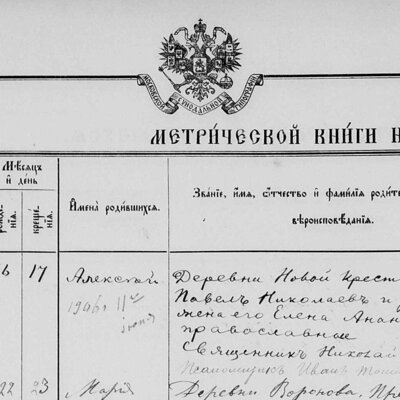 МОСКОВСКОЙ СѴНОДАЛЬНОЙ ТИПОГРАФІИ
МЕТРИ́ЧЕСКОЙ КНИ́ГИ Н
Мѣсяцъ
и день
рожде
нія.
креще
нія.
Имена роди́вшихся.
Званіе, имя, отчество и фамилія родите
вѣроисповѣданія.
6 17 Алексѣй Деревни Новой крест
1906 г 11го Павелъ Николаевъ и
іюня жена его Елена Анан
православные
Священникъ Николай
Псаломщикъ Иванъ
22 23 Марія Деревни Воронова,